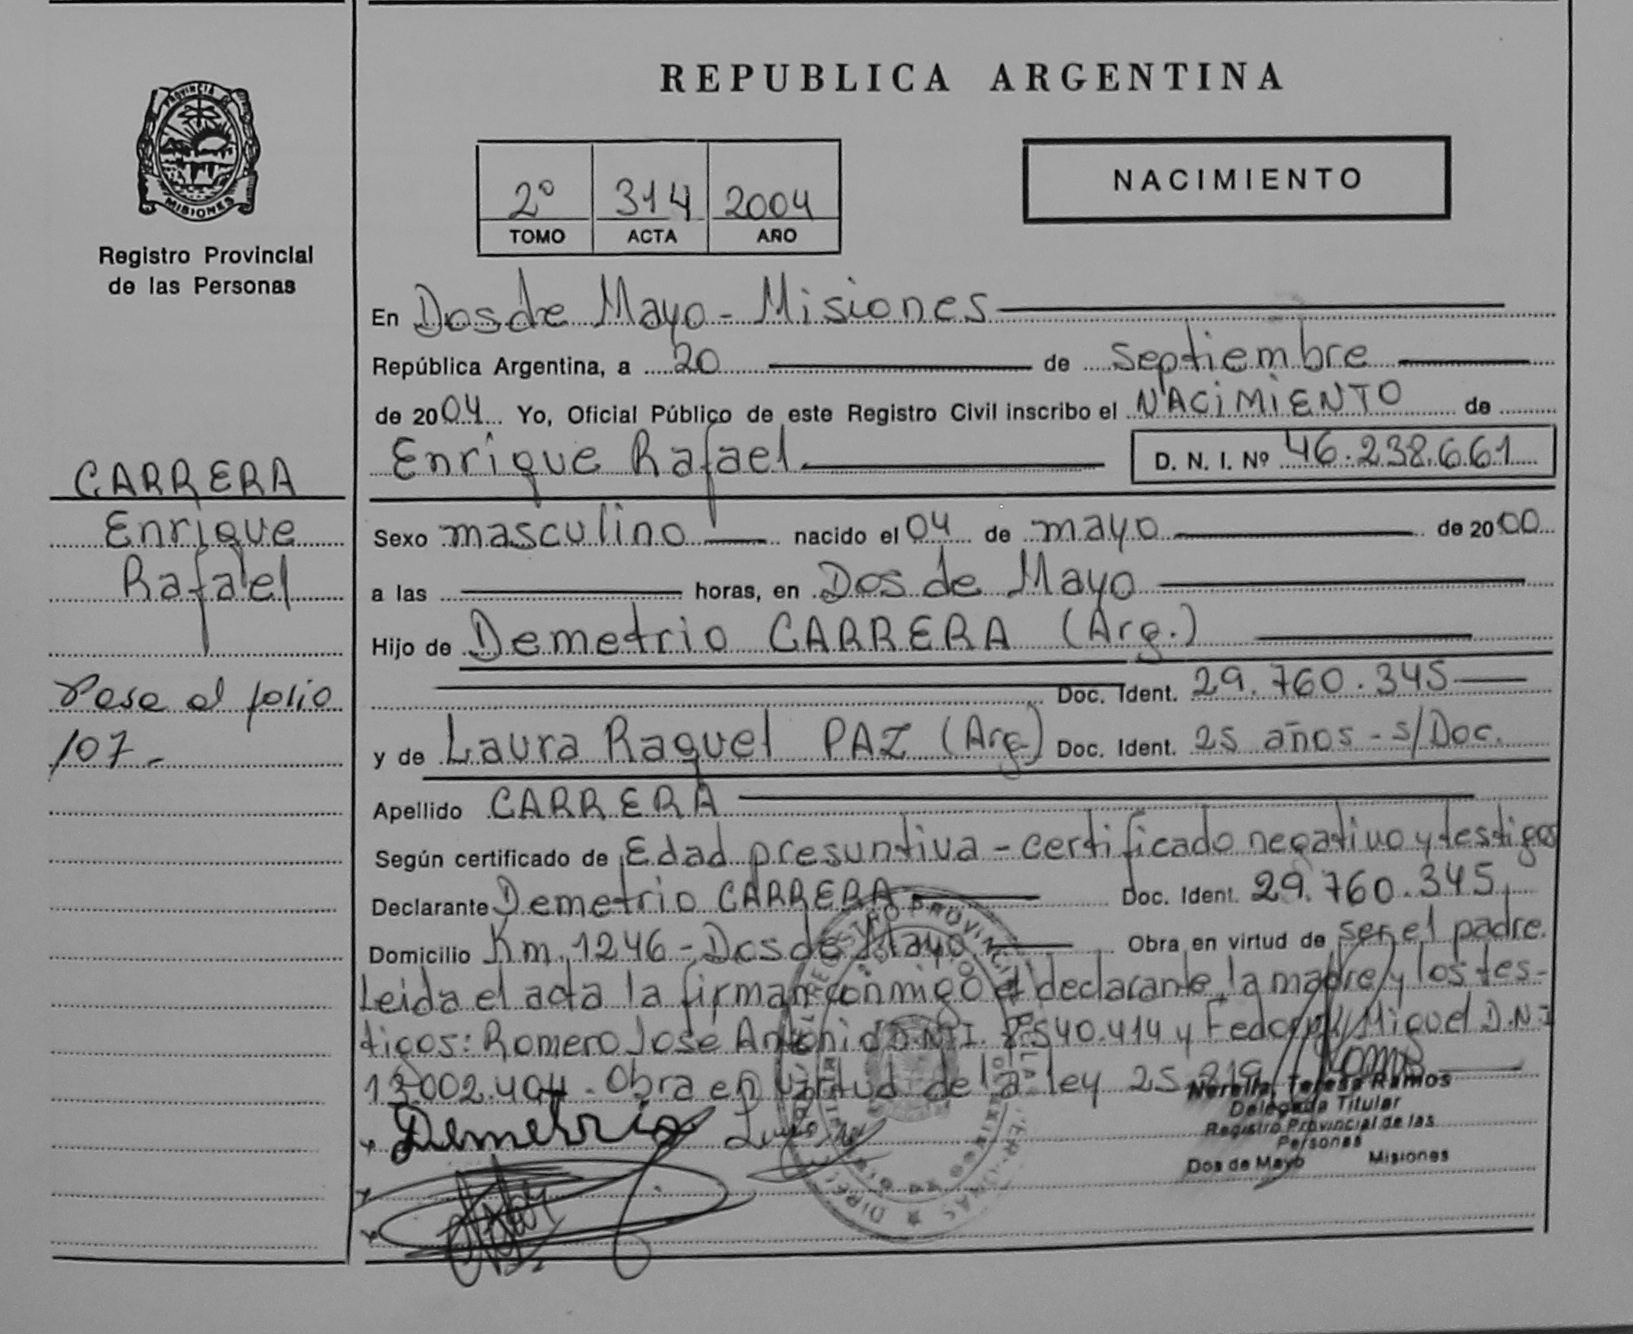 REPUBLICA ARGENTINA
PROVINCIA DE
MISIONES
Registro Provincial
de las Personas
2º 314 2004
TOMO ACTA AÑO
NACIMIENTO
En Dos de Mayo - Misiones
República Argentina, a 20 de septiembre
de 2004 Yo, Oficial Público de este Registro Civil inscribo el NACIMIENTO de
Enrique Rafael D. N. I. Nº 46.238.661
CARRERA
Enrique
Rafael
Pasa al folio
107.-
Sexo masculino nacido el 04 de mayo de 2000
a las horas, en Dos de Mayo
Hijo de Demetrio CARRERA (Arg.)
Doc. Ident. 29.760.345
y de Laura Raquel PAZ (Arg.) Doc. Ident. 25 años - s/Doc.
Apellido CARRERA
Según certificado de Edad presuntiva - certificado negativo y testigos
Declarante Demetrio CARRERA Doc. Ident. 29.760.345
Domicilio Km. 1246 - Dos de Mayo Obra en virtud de ser el padre.
Leida el acta la firman conmigo el declarante, la madre y los tes-
tigos: Romero José Antonio D.N.I. 8.540.414 y Miguel D.N.I
13.002.404 - Obra en virtud de la ley 25.819
Demetrio
Teresa Ramos
Delegada Titular
Registro Provincial de las
Personas
Dos de Mayo Misiones